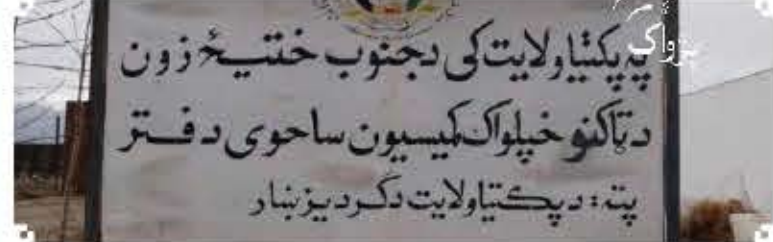 پژواک
په پکتیا ولایت کی د جنوب ختیځ زون
د ټاکنو خپلواک کمیسیون ساحوی دفتر
پته: د پکتیا ولایت د ګردیز ښار